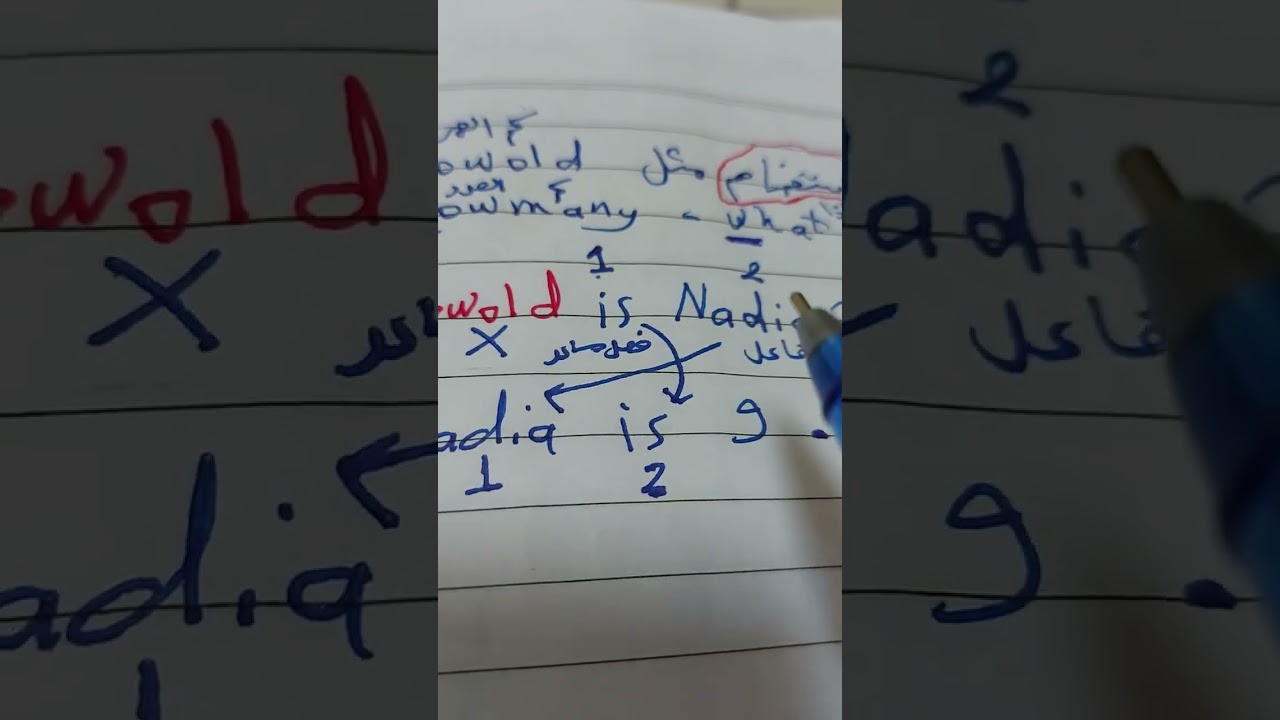 كم العمر
owold مثل ستفهام
owmany - what
1 2
owold is Nadia?
X فعل مساعد فاعل
adia is 9.
1 2